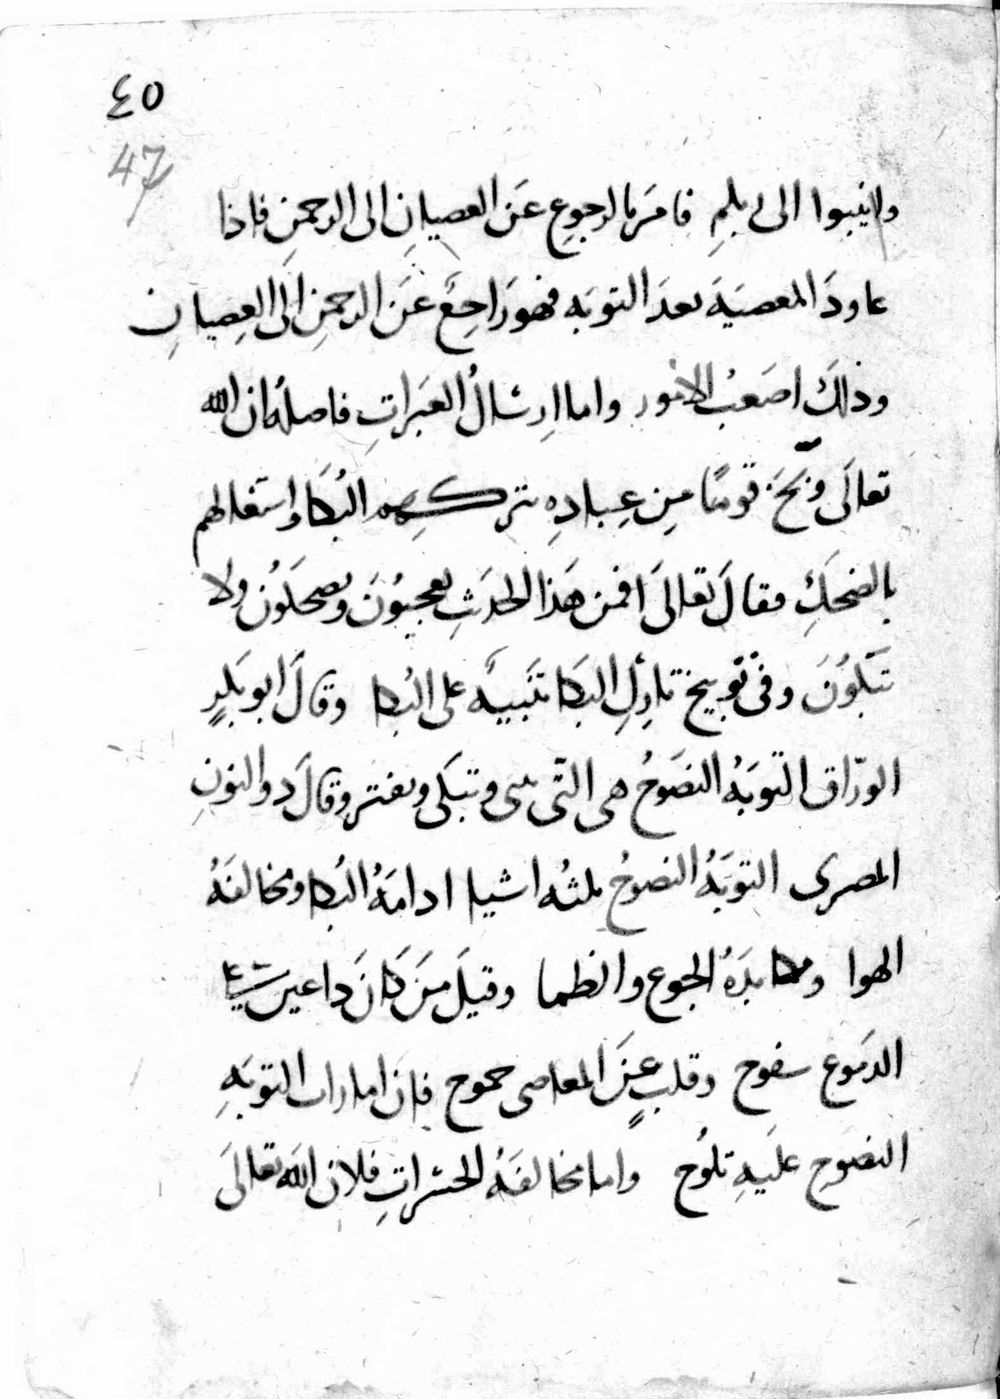 ٤٥
47
وانيبوا الى ربكم فامر بالرجوع عن العصيان الى الرحمن فاذا
عاود المعصية بعد التوبه فهو راجع عن الرحمن الى العصيان
وذلك اصعب الامور واما ارسال العبرات فاصله ان الله
تعالى وبخ قوما من عباده بتركهم البكا واشتغالهم
بالضحك فقال تعالى افمن هذا الحديث تعجبون وتضحكون ولا
تبكون وفى توبيخ تارك البكا تنبيه على البكا وقال ابو بكر
الوراق التوبة النصوح هى التى وتبكى وقال ذو النون
المصرى التوبة النصوح ثلثه اشيا ادامة البكا ومخالفة
الهوا ومكابدة الجوع والظما وقيل من كان ذا عين
الدموع سفوح وقلب عن المعاصى جموح فان امارات التوبه
النصوح عليه تلوح واما مخالفة الحشرات فلان الله تعالى